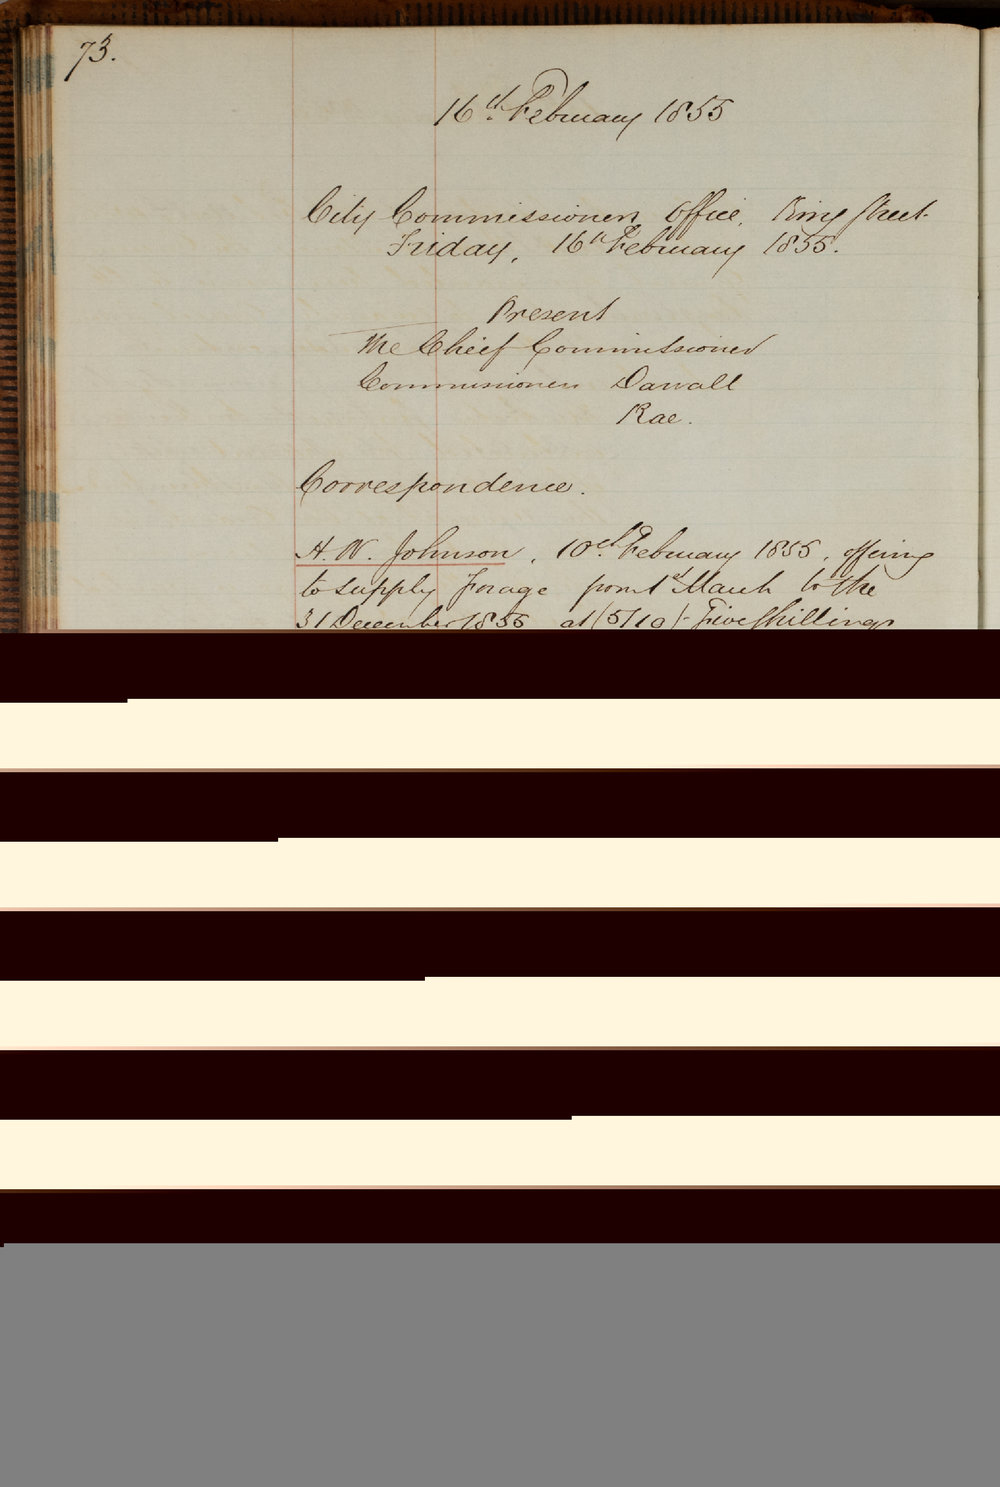 73.
16th February 1855
City Commissioners Office, King Street
Friday, 16th February 1855.
Present
The Chief Commissioner
Commissioners Darvall
Rae.
Correspondence.
H. W. Johnson, 10th February 1855, offering
to supply Forage from 1st March to the
31 December 1855 at (5/10) Five shillings